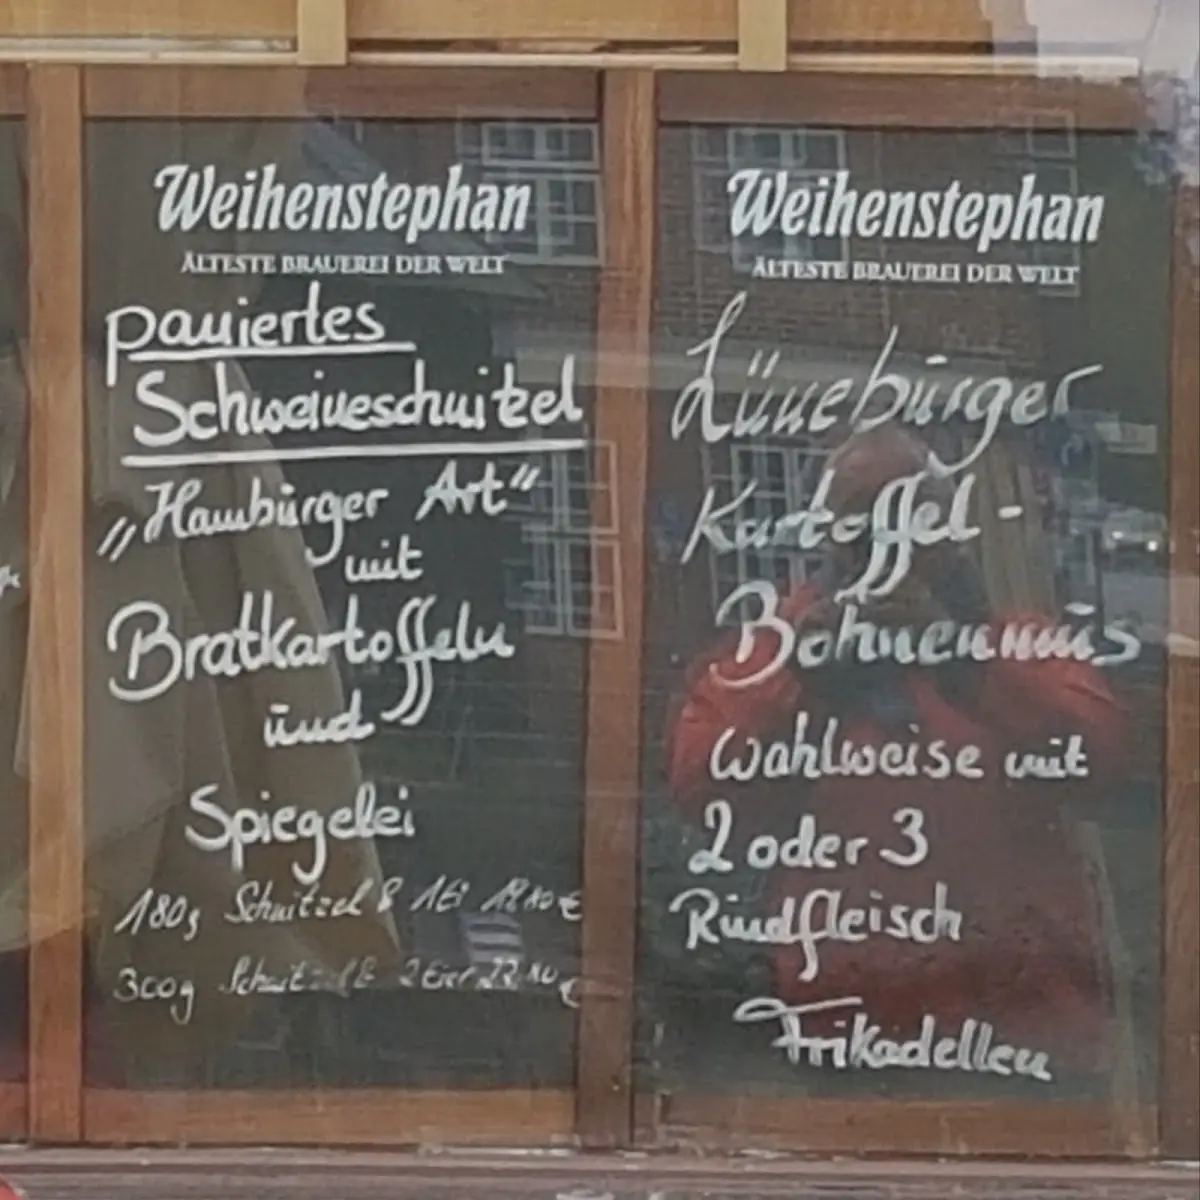 Weihenstephan
ÄLTESTE BRAUEREI DER WELT
paniertes
Schweineschnitzel
„Hamburger Art“
mit
Bratkartoffeln
und
Spiegelei
180g Schnitzel & 1 Ei €
300g Schnitzel & 2 Eier 22,10 €
Weihenstephan
ÄLTESTE BRAUEREI DER WELT
Lüneburger
Kartoffel-
Bohnenmus
wahlweise mit
2 oder 3
Rindfleisch
Frikadellen